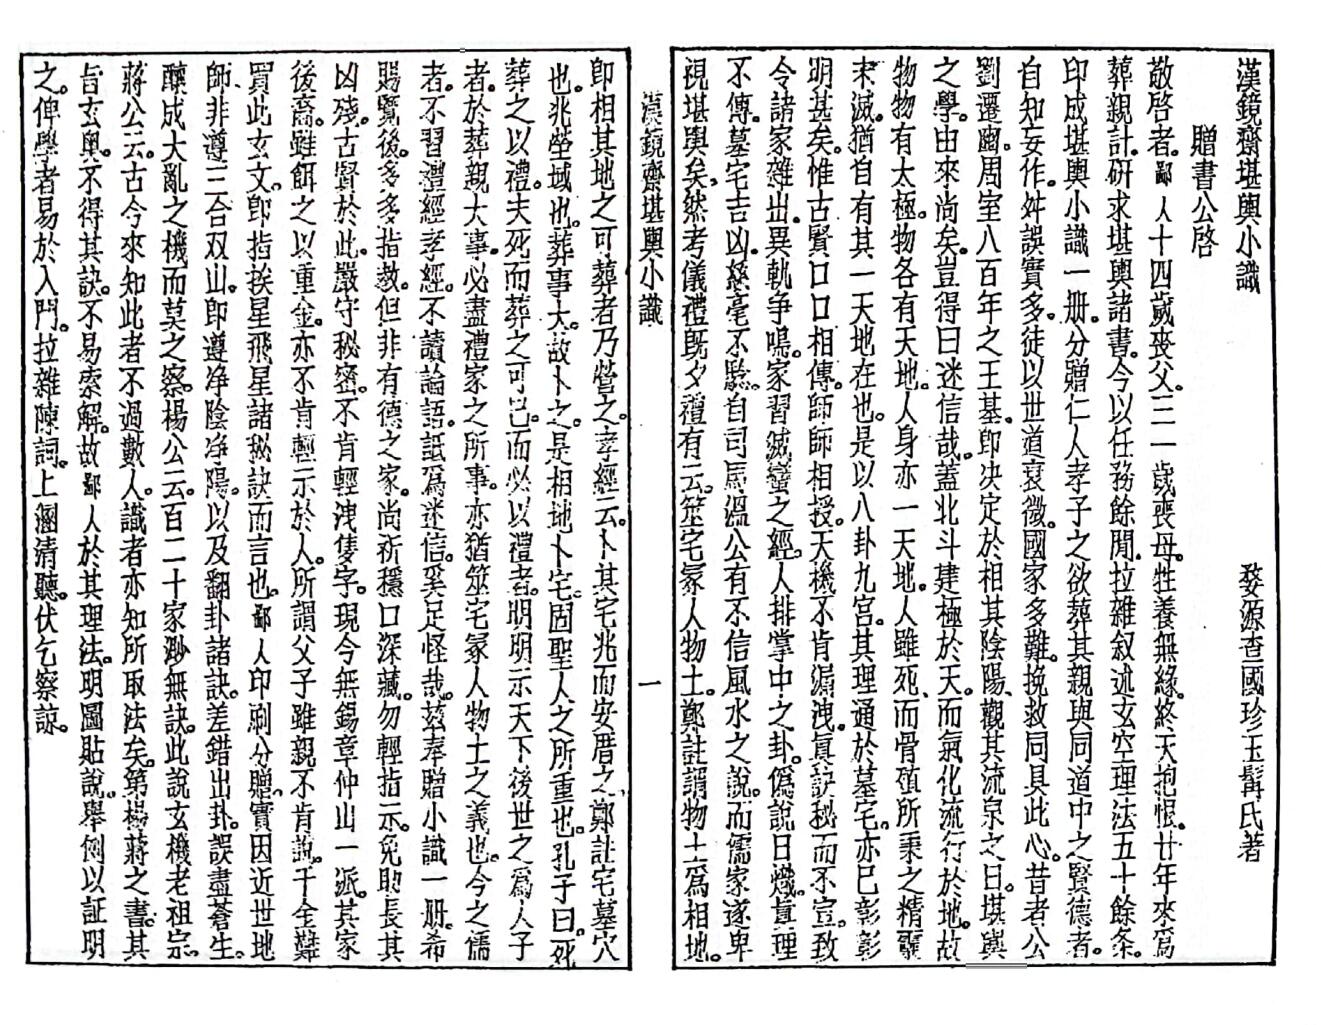 漢鏡齋堪輿小識
婺源查國珍玉髯氏著
贈書公啓
敬啓者。鄙人十四歲喪父。三一歲喪母。牲養無緣。終天抱恨。廿年來爲
葬親計。研求堪輿諸書。今以任務餘閒。拉雜叙述玄空理法五十餘条。
印成堪輿小識一册。分贈仁人孝子之欲葬其親與同道中之賢德者。
自知妄作。舛誤實多。徒以世道衰微。國家多難。挽救同具此心。昔者公
劉遷豳。周室八百年之王基。即决定於相其陰陽、觀其流泉之日。堪輿
之學。由來尚矣。豈得曰迷信哉。蓋北斗建極於天。而氣化流行於地。故
物物有太極。物各有天地。人身亦一天地。人雖死、而骨殖所秉之精靈
未滅。猶自有其一天地在也。是以八卦九宮。其理通於墓宅。亦已彰彰
明甚矣。惟古賢口口相傳。師師相授。天機不肯漏洩。眞訣秘而不宣。致
令諸家雜出。異軌争鳴。家習滅蠻之經。人排掌中之卦。僞說日熾。眞理
不傳。墓宅吉凶。絲毫不驗。自司馬溫公有不信風水之說。而儒家遂卑
視堪輿矣、然考儀禮既夕禮有云。筮宅冢人物土。鄭註謂物土爲相地。
漢鏡齋堪輿小識
一
即相其地之可葬者乃營之。孝經云。卜其宅兆而安厝之、鄭註宅墓穴
也。兆塋域也。葬事大。故卜之。是相地卜宅。固聖人之所重也。孔子曰。死
葬之以禮。夫死而葬之可已。而必以禮者。明明示天下後世之爲人子
者。於葬親大事。必盡禮家之所事。亦猶筮宅冢人物土之義也。今之儒
者。不習禮經孝經。不讀論語。詆爲迷信。奚足怪哉。茲奉贈小識一册。希
賜覽後。多多指教。但非有德之家。尚祈穩口深藏。勿輕指示。免助長其
凶殘。古賢於此。嚴守秘密。不肯輕洩隻字。現今無錫章仲山一派。其家
後裔。雖餌之以重金。亦不肯輕示於人。所謂父子雖親不肯說。千金難
買此玄文。即指挨星飛星諸秘訣而言也。鄙人印刷分贈。實因近世地
師、非遵三合双山。即遵净陰净陽。以及翻卦諸訣。差錯出卦。誤盡蒼生。
釀成大亂之機而莫之察。楊公云。百二十家渺無訣。此說玄機老祖宗。
蔣公云。古今來知此者不過數人。識者亦知所取法矣。第楊蔣之書。其
旨玄奥。不得其訣。不易索解。故鄙人於其理法。明圖貼說。舉例以証明
之。俾學者易於入門。拉雜陳詞。上溷清聽。伏乞察諒。